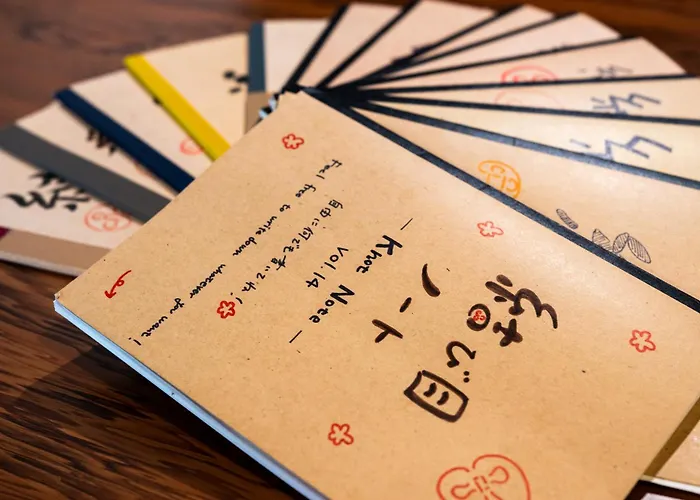 結び目
ノート
— Knot Note —
vol.14
自由に何でも書いてね!
Feel free to write down whatever you want!